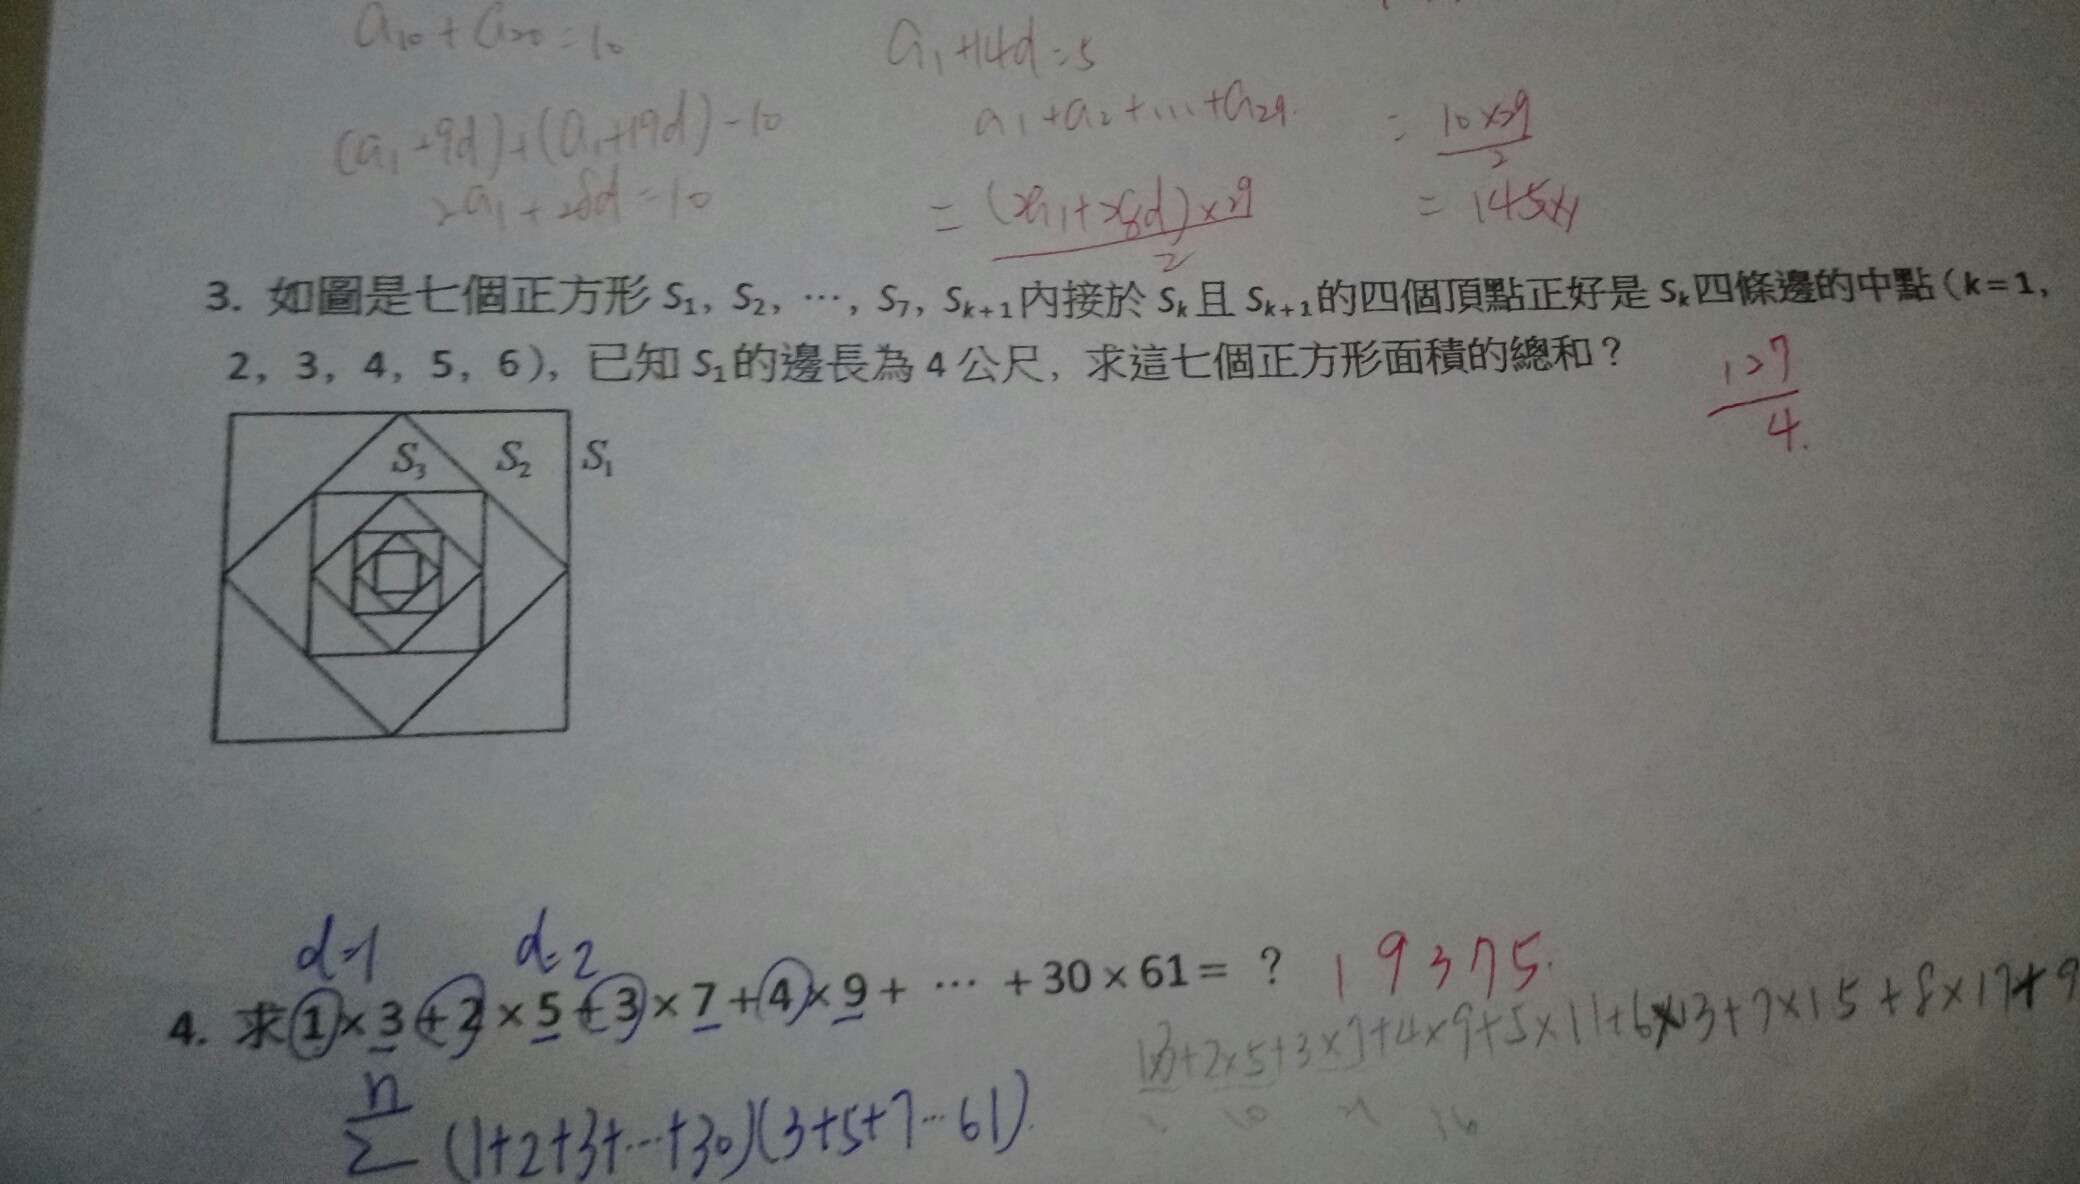 a₁₀+a₂₀=10
a₁+14d=5
(a₁+9d)+(a₁+19d)=10
a₁+a₂+...+a₂₉
= 10×29/2
2a₁+28d=10
= (2a₁+28d)×29/2
= 145
3. 如圖是七個正方形 S₁, S₂, ⋯, S₇, Sₖ₊₁內接於 Sₖ且 Sₖ₊₁的四個頂點正好是 Sₖ四條邊的中點(k=1,
2, 3, 4, 5, 6), 已知 S₁的邊長為 4 公尺, 求這七個正方形面積的總和?
127/4.
S₃ S₂ S₁
d=1
d=2
4. 求1×3+2×5+3×7+4×9+ ⋯ +30×61= ? 19375.
1×3+2×5+3×7+4×9+5×11+6×13+7×15+8×17+9
10
n
Σ (1+2+3+...+30)(3+5+7...61)